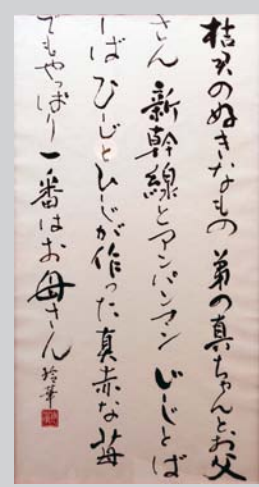 桔君の好きなもの 弟の真ちゃんとお父
さん 新幹線とアンパンマン じーじとば
ーば ひーじとひーじが作った真赤な苺
でもやっぱり一番はお母さん 玲華